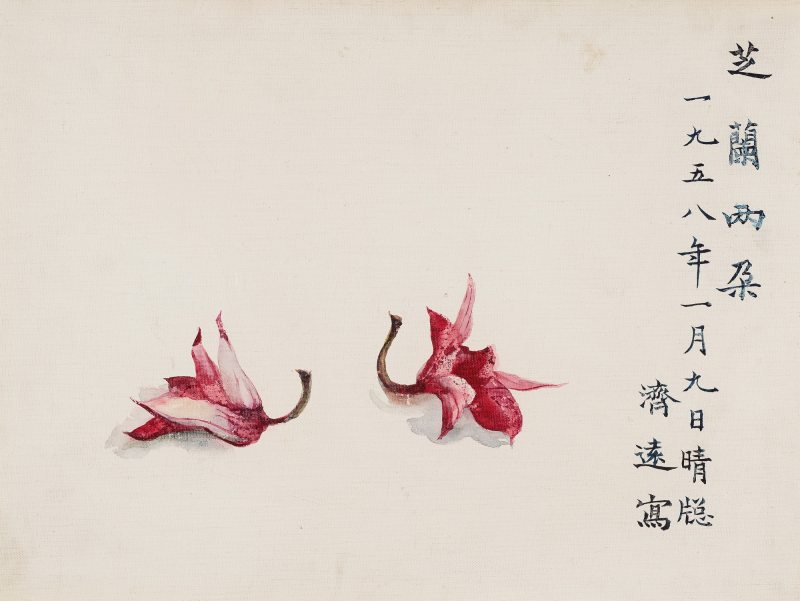 芝蘭兩朶
一九五八年一月九日晴牎
濟遠寫